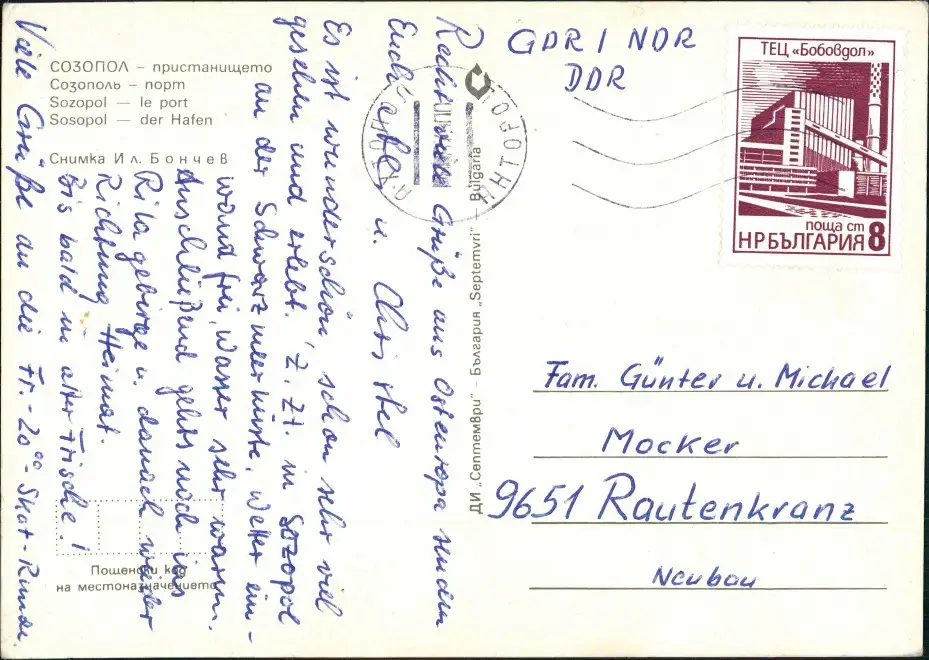 СОЗОПОЛ – пристанището
Созополь – порт
Sozopol — le port
Sosopol — der Hafen
Снимка Ил. Бончев
Recht viele Grüße aus Osteuropa senden
Euch u. Christel
Es ist wunderschön, schon sehr viel
gesehen und erlebt. Z. Zt. in Sozopol
an der Schwarzmeerküste, Wetter ein-
wandfrei, Wasser sehr warm.
Anschließend gehts noch ins
Rilagebirge u. danach wieder
Richtung Heimat.
Bis bald in alter Frische!
Viele Grüße an die Fr.-20⁰⁰-Skat-Runde
Пощенски код
на местоназначението
ДИ „Септември" – България „Septemvri" – Bulgaria
GDR / NDR
DDR
ТЕЦ «Бобовдол»
поща ст
НР БЪЛГАРИЯ 8
Fam. Günter u. Michael
Mocker
9651 Rautenkranz
Neubau